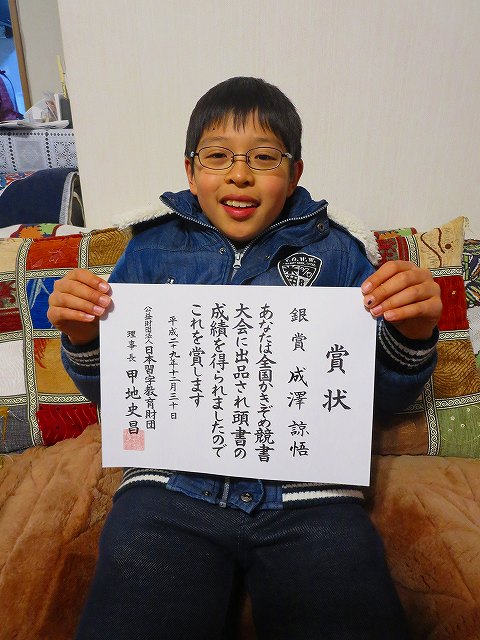 賞状
銀賞 成澤諒悟
あなたは全国かきぞめ競書
大会に出品され頭書の
成績を得られましたので
これを賞します
平成二十九年十二月三十日
公益財団法人日本習字教育財団
理事長 甲地史昌